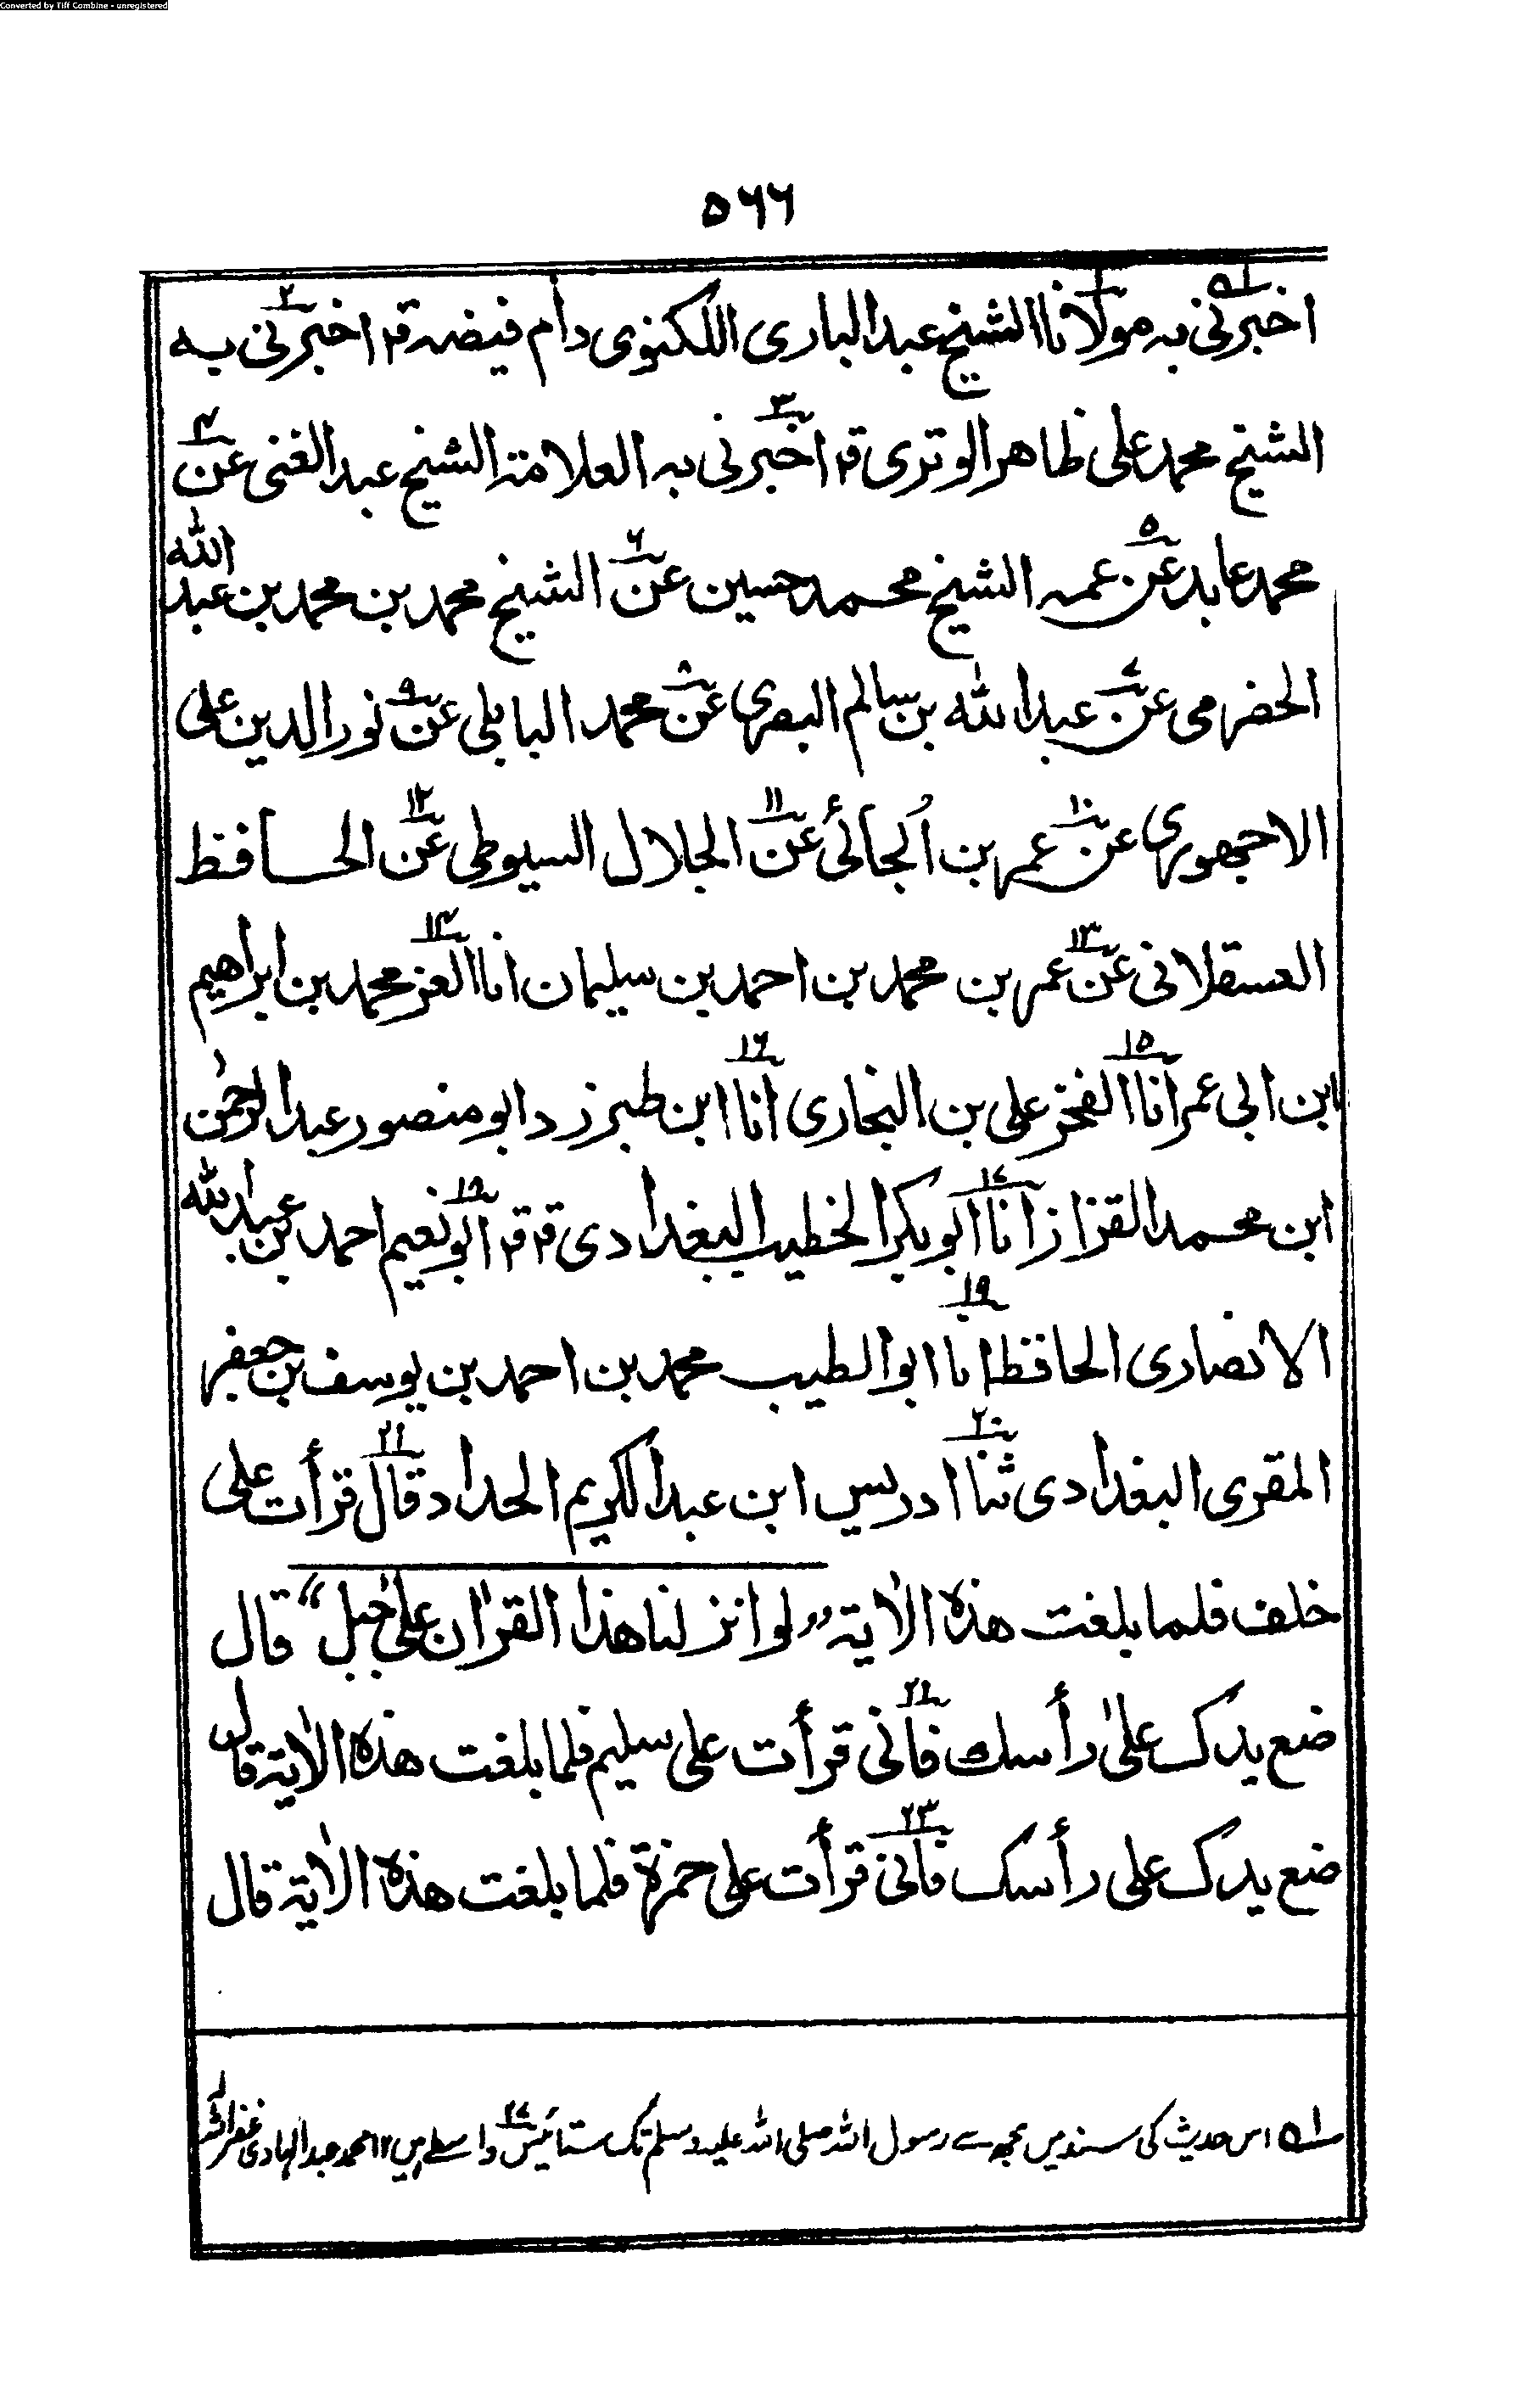 Converted by Tiff Combine - unregistered
۵۶۶
اخبرنی بہ مولانا الشیخ عبد الباری اللکنوی دام فیضہ قال اخبرنی بہ
الشیخ محمد علی ظاہر الوتری قال اخبرنی بہ العلامۃ الشیخ عبد الغنی عن
محمد عابد عن عمہ الشیخ محمد حسین عن الشیخ محمد بن محمد بن عبد اللہ
الحضرمی عن عبد اللہ بن سالم البصری عن محمد البابلی عن نور الدین علی
الاجھوری عن عمر بن الجائی عن الجلال السیوطی عن الحافظ
العسقلانی عن عمر بن محمد بن احمد بن سلیمان انا العز محمد بن ابراھیم
ابن ابی عمر انا الفخر علی بن البخاری انا ابن طبرزد ابو منصور عبد الرحمٰن
ابن محمد القزاز انا ابو بکر الخطیب البغدادی قال قال ابو نعیم احمد بن عبد اللہ
الانصاری الحافظ انا ابو الطیب محمد بن احمد بن یوسف بن جعفر
المقری البغدادی ثنا ادریس ابن عبد الکریم الحداد قال قرأت علی
خلف فلما بلغت ھذہ الاٰیۃ ”لو انزلنا ھذا القراٰن علیٰ جبل“ قال
ضع یدک علیٰ رأسک فانی قرأت علی سلیم فلما بلغت ھذہ الاٰیۃ قال
ضع یدک علی رأسک فانی قرأت علی حمزۃ فلما بلغت ھذہ الاٰیۃ قال
۱ہ اس حدیث کی سند میں مجھ سے رسول اللہ صلی اللہ علیہ وسلم تک ستائیس واسطے ہیں ۱۲ محمد عبد الہادی غفر اللہ لہ